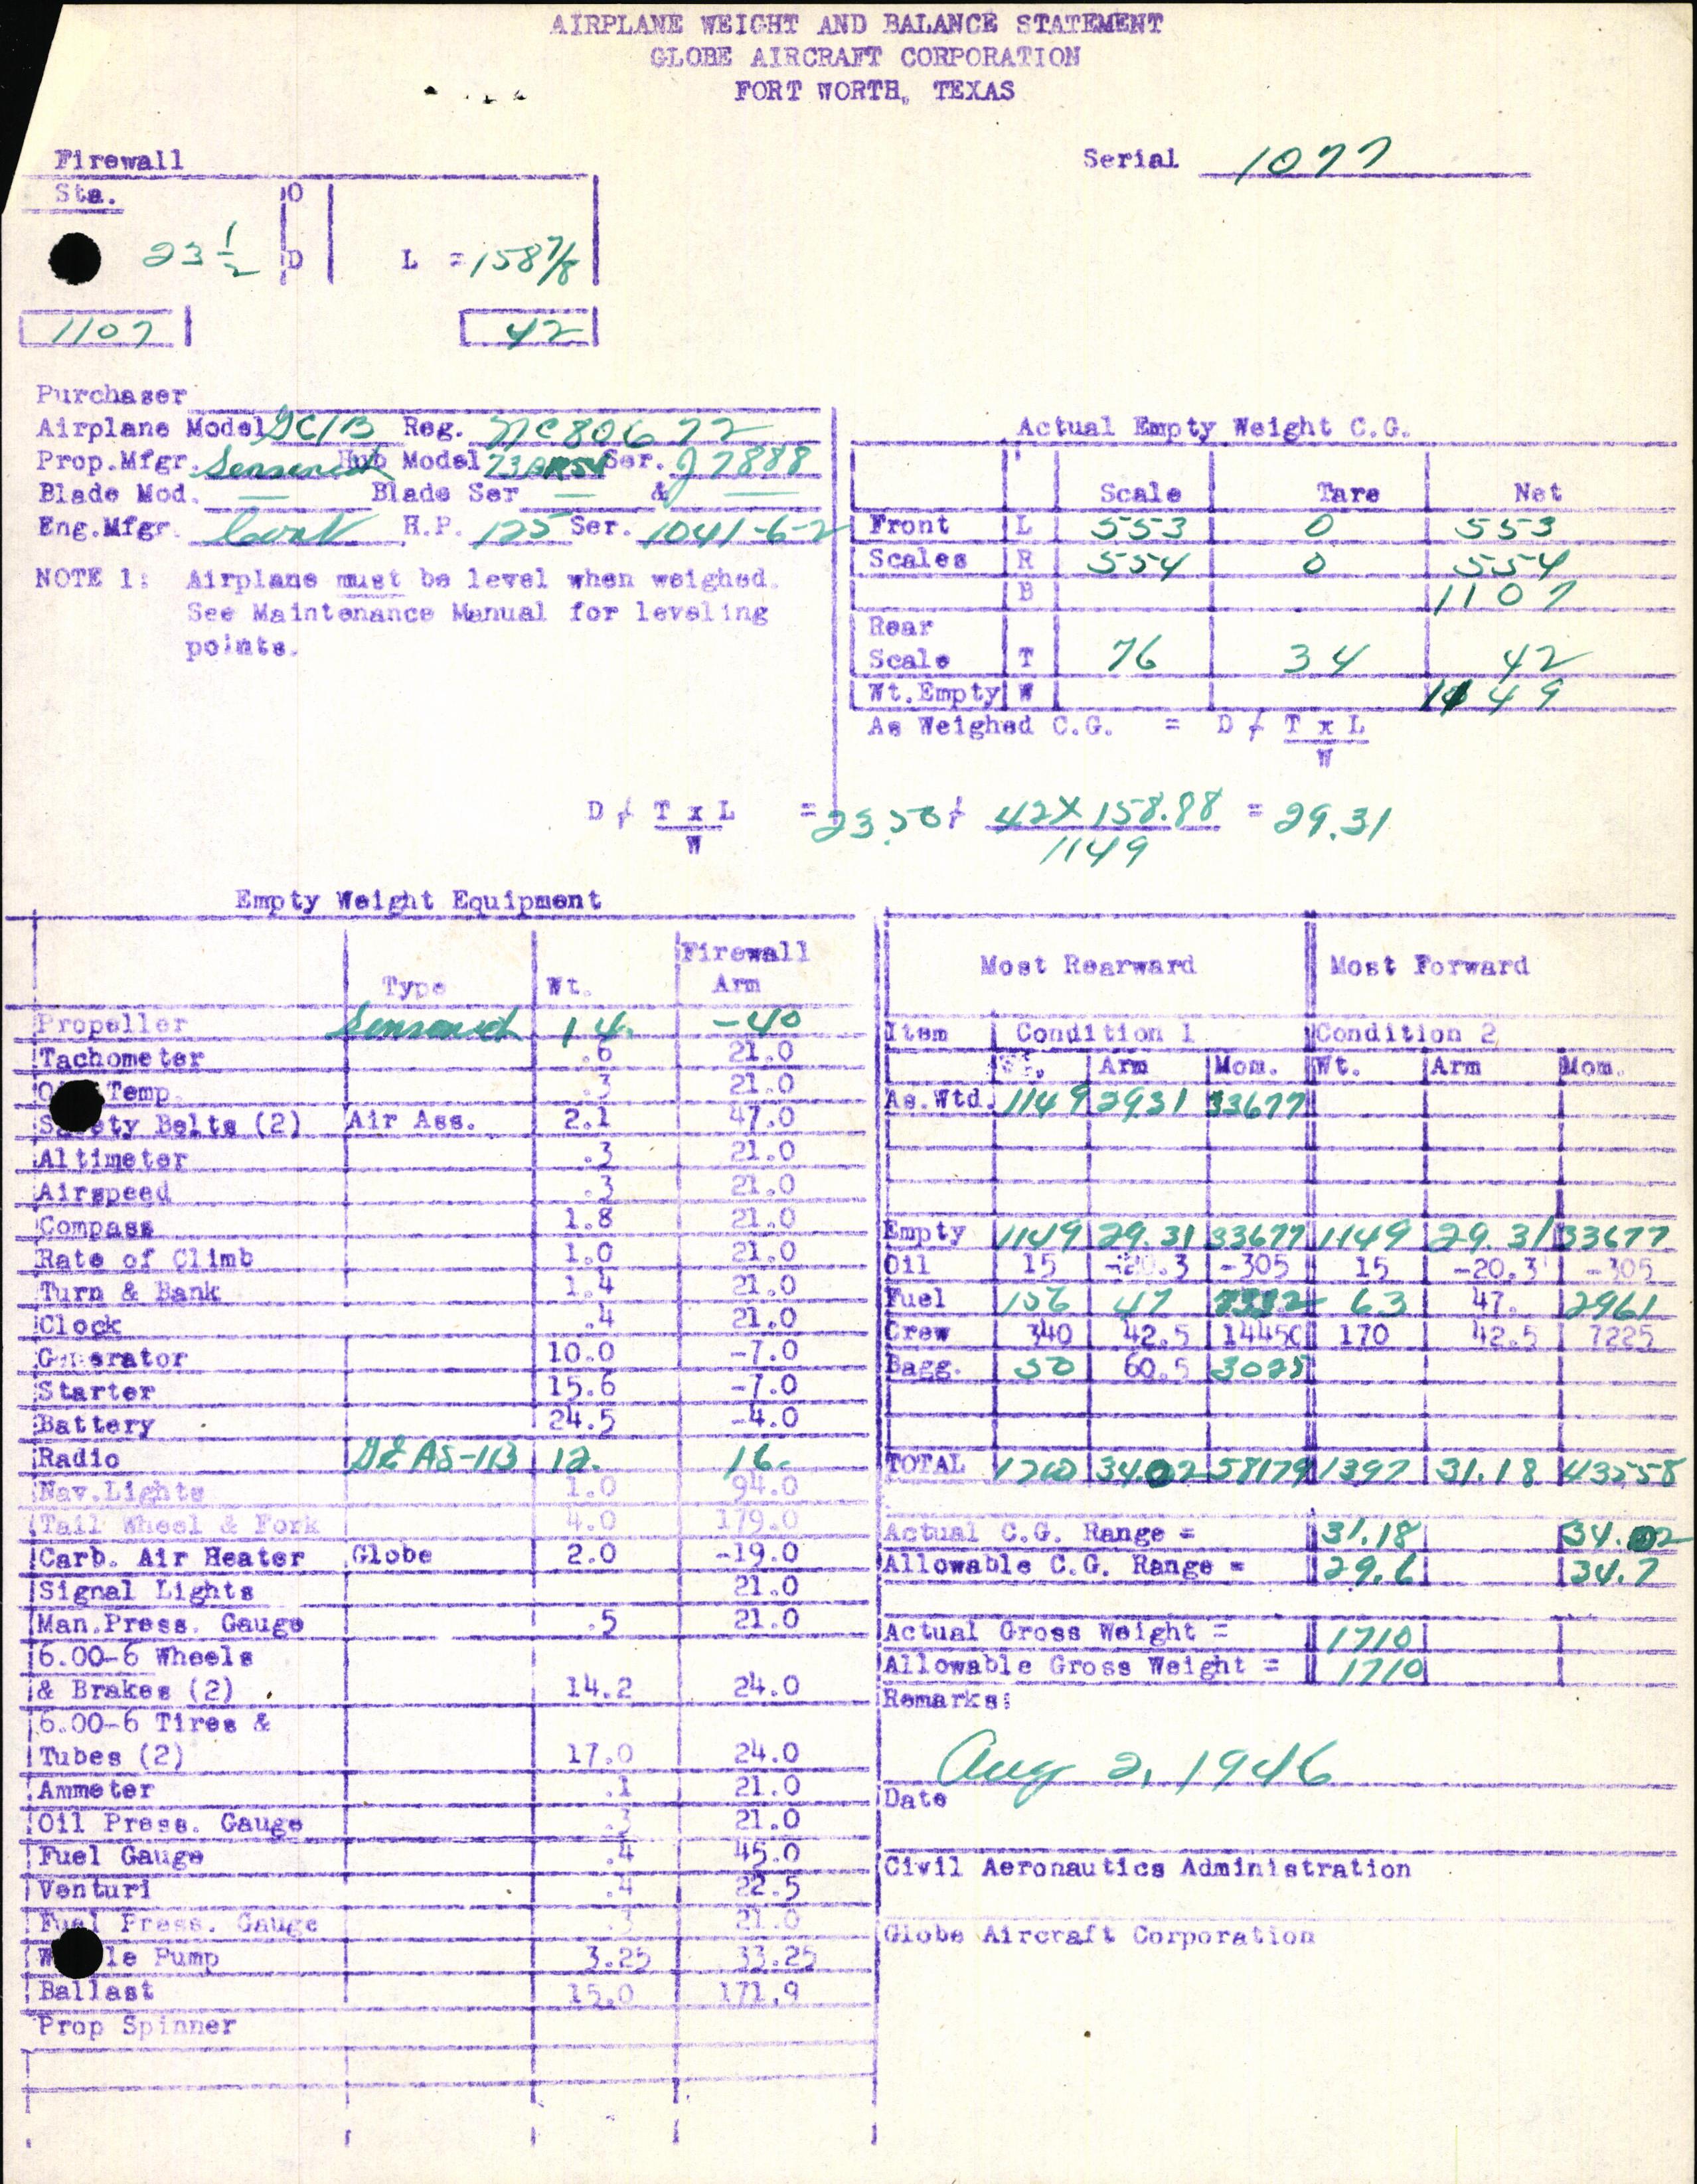 AIRPLANE WEIGHT AND BALANCE STATEMENT
GLOBE AIRCRAFT CORPORATION
FORT WORTH, TEXAS
Firewall
Serial 1077
Sta. O
23 1/2 D L = 158 7/8
1107 42
Purchaser
Airplane Model GC1B Reg. NC80677
Prop.Mfgr. Sensenich Hub Model 73BR54 Ser. J7888
Blade Mod. — Blade Ser — & —
Eng.Mfgr. Cont H.P. 125 Ser. 1041-6-2
NOTE 1: Airplane must be level when weighed.
See Maintenance Manual for leveling
points.
Actual Empty Weight C.G.
Scale Tare Net
Front L 553 0 553
Scales R 554 0 554
B 1107
Rear
Scale T 76 34 42
Wt.Empty W 1149
As Weighed C.G. = D + T x L
W
D + T x L = 23.50 + 42 x 158.88 = 29.31
W 1149
Empty Weight Equipment
Type Wt. Firewall Arm
Propeller Sensenich 14. -40
Tachometer .6 21.0
Temp. .3 21.0
Safety Belts (2) Air Ass. 2.1 47.0
Altimeter .3 21.0
Airspeed .3 21.0
Compass 1.8 21.0
Rate of Climb 1.0 21.0
Turn & Bank 1.4 21.0
Clock .4 21.0
Generator 10.0 -7.0
Starter 15.6 -7.0
Battery 24.5 -4.0
Radio GE AS-1B 12. 16.
Nav.Lights 1.0 94.0
Tail Wheel & Fork 4.0 179.0
Carb. Air Heater Globe 2.0 -19.0
Signal Lights 21.0
Man.Press. Gauge .5 21.0
6.00-6 Wheels
& Brakes (2) 14.2 24.0
6.00-6 Tires &
Tubes (2) 17.0 24.0
Ammeter .1 21.0
Oil Press. Gauge .3 21.0
Fuel Gauge .4 45.0
Venturi .4 22.5
Fuel Press. Gauge .3 21.0
Pump 3.25 33.25
Ballast 15.0 171.9
Prop Spinner
Most Rearward Most Forward
Item Condition 1 Condition 2
Wt. Arm Mom. Wt. Arm Mom.
As.Wtd. 1149 2931 33677
Empty 1149 29.31 33677 1149 29.31 33677
Oil 15 -20.3 -305 15 -20.3 -305
Fuel 156 47 7332 63 47. 2961
Crew 340 42.5 14450 170 42.5 7225
Bagg. 50 60.5 3025
TOTAL 1710 34.02 58179 1397 31.18 43558
Actual C.G. Range = 31.18 34.02
Allowable C.G. Range = 29.6 34.7
Actual Gross Weight = 1710
Allowable Gross Weight = 1710
Remarks:
Aug 2, 1946
Date
Civil Aeronautics Administration
Globe Aircraft Corporation